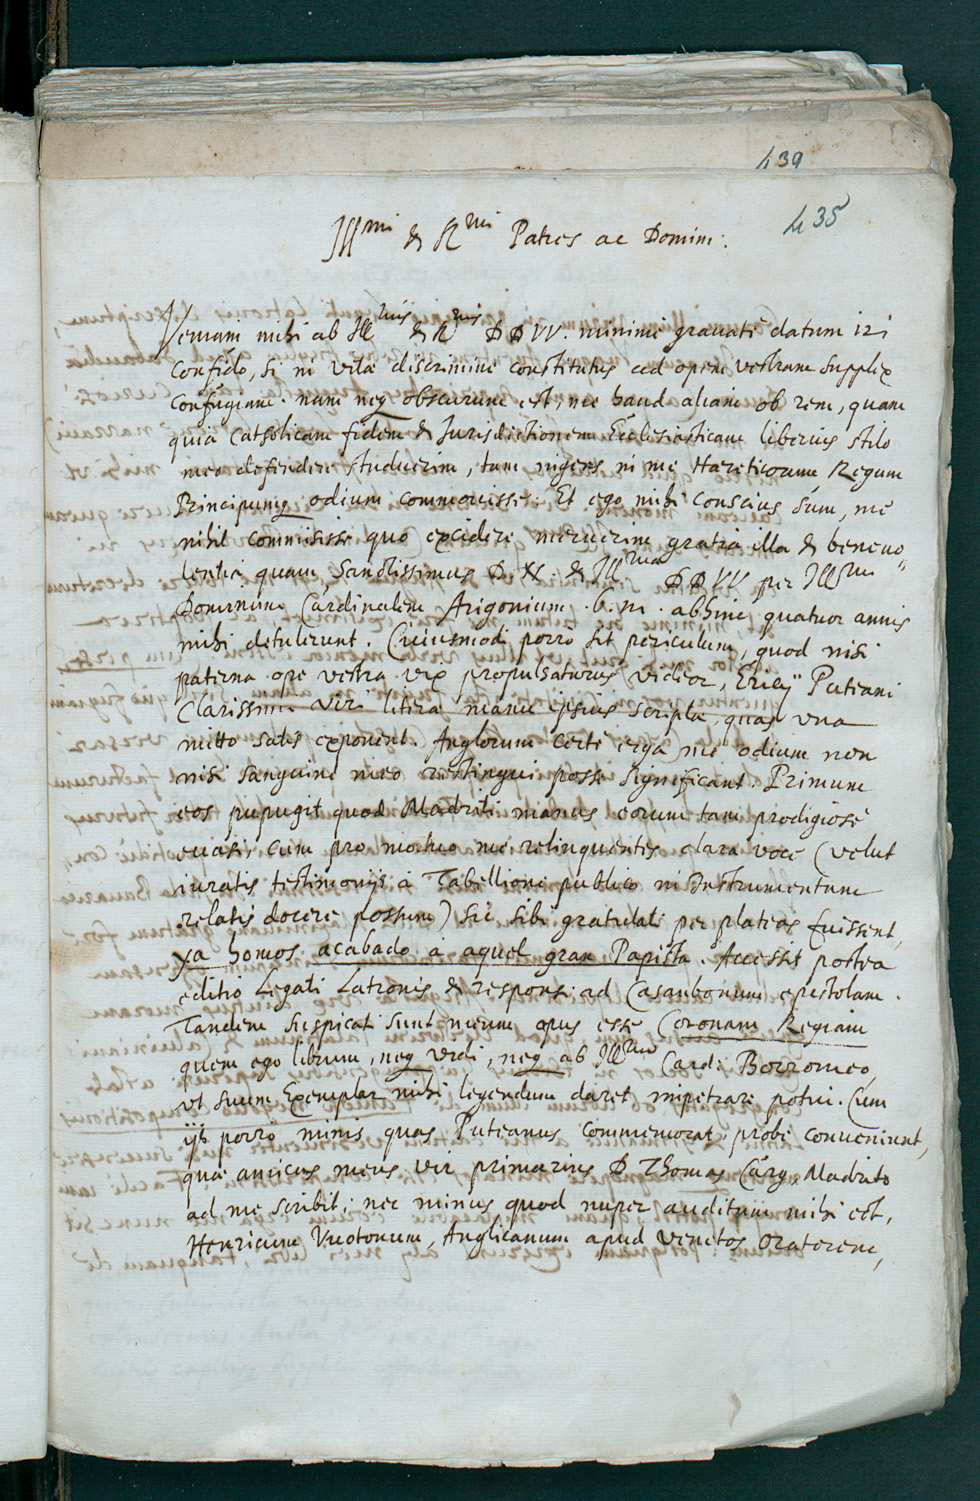 439
435
Ill^mi & R^mi Patres ac Domini:
Veniam mihi ab Ill^mis & R^mis DD VV. minimè gravatè datum iri
confido, si in vitæ discrimine constitutus ad opem vestram supplex
confugiam. nam neq obscurum est, me haud aliam ob rem, quam
quia Catholicam fidem & Jurisdictionem Ecclesiasticam liberius stilo
meo defendere studuerim, tam ingens in me Hæreticorum Regum
Principumq odium commovisse. Et ego mihi conscius sum, me
nihil commisisse quo excidere meruerim gratia illa & benevo„
lentia quam Sanctissimus D. N. & Ill^mæ DD VV per Ill^mum
Dominum Cardinalem Arigonium. b. m. abhinc quatuor annis
mihi detulerunt. Cuiusmodi porro sit periculum, quod nisi
paterna ope vestra vix propulsaturus videor, Ericij Puteani
Clarissimi viri literæ manu ipsius scriptæ, quas una
mitto satis exponent. Anglorum certè erga me odium non
nisi sanguine meo restingui posse significant. Primum
eos pupugit quod Madriti manus eorum tam prodigiosè
euasi, cum pro mortuo me relinquentes clara voce (velut
iuratis testimonijs à Tabellione publico in Instrumentum
relatis docere possum) sic sibi gratulati per plateas fuissent,
ya hemos acabado à aquel gran Papista. Accessit postea
editio Legati Latronis & responsi ad Casaubonum epistolam.
Tandem suspicati sunt meum opus esse Coronam Regiam
quem ego librum, neq vidi, neq ab Ill^mo Card: Borromeo,
ut suum Exemplar mihi legendum daret impetrare potui. Cum
ijs porrò minis quas Puteanus commemorat, probè conveniunt,
quæ amicus meus vir primarius D. Thomas Cârg, Madrito
ad me scribit; nec minus quod nuper auditum mihi est,
Henricum Vuotonum, Anglicanum apud Venetos Oratorem,